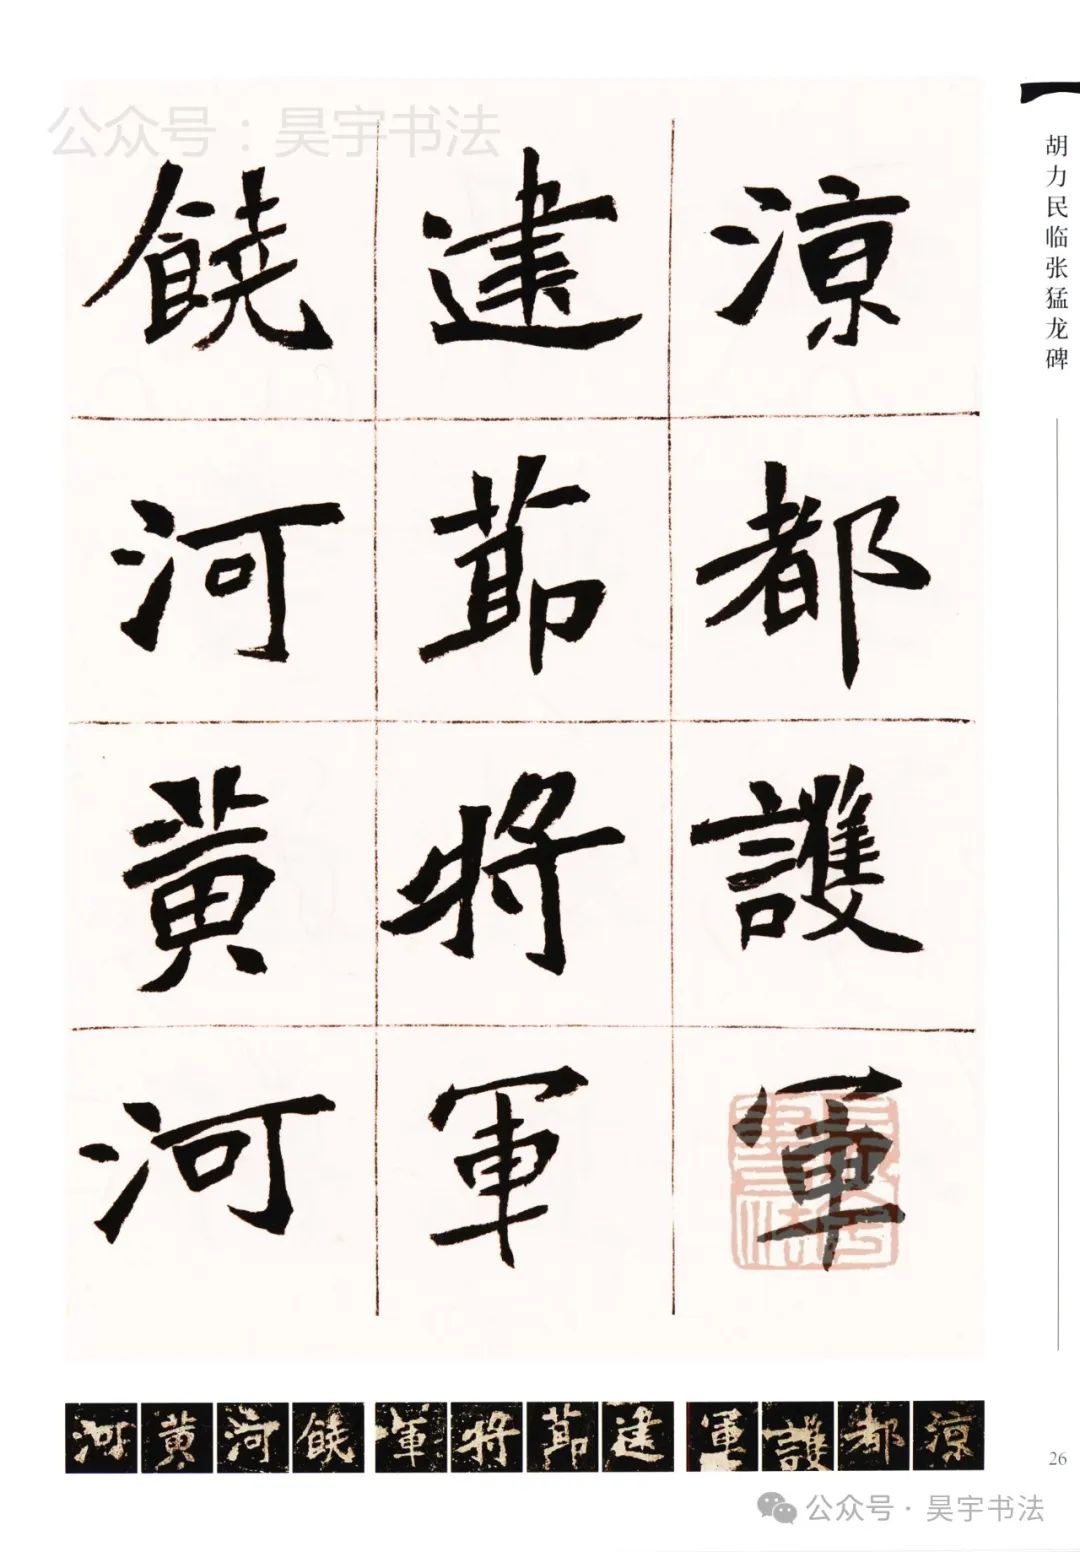 公众号：昊宇书法
胡力民临张猛龙碑
涼都護軍
建節将軍
饒河黃河
河黃河饒軍将節建軍護都涼
26
公众号·昊宇书法